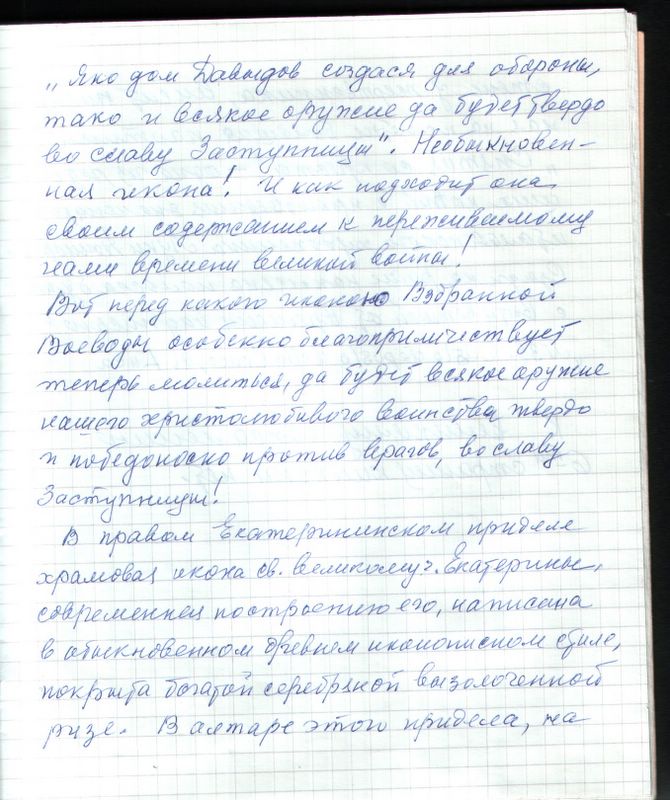 „Яко дом Давыдов создася для обороны,
тако и всякое оружие да будет твердо
во славу Заступницы". Необыкновен-
ная икона! И как подходит она
своим содержанием к переживаемому
нами времени великой войны!
Вот перед какого иконою Взбранной
Воеводы особенно благоприличествует
теперь молиться, да будет всякое оружие
нашего христолюбивого воинства твердо
и победоносно против врагов, во славу
Заступницы!
В правом Екатерининском приделе
храмовая икона св. великомуч. Екатерины,
современная построению его, написана
в обыкновенном древнем иконописном стиле,
покрыта богатой серебряной вызолоченной
ризе. В алтаре этого придела, на